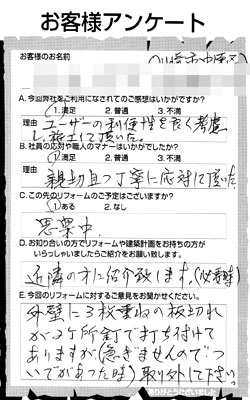 お客様アンケート
お客様のお名前
川崎市中原区
A. 今回弊社をご利用になされてのご感想はいかがですか?
1.満足 2.普通 3.不満
理由 ユーザーの利便性を良く考慮
し施工して頂いた。
B. 社員の応対や職人のマナーはいかがでしたか?
1.満足 2.普通 3.不満
理由 親切且つ丁寧に応対して頂いた
C. この先のリフォームのご予定はございますか?
1.ある 2.なし
思案中.
D. お知り合いの方でリフォームや建築計画をお持ちの方が
いらっしゃいましたらご紹介をお願い致します。
近隣の方に紹介致します。(必要時)
E. 今回のリフォームに対するご意見をお聞かせください。
外壁に3枚重ねの板切れ
が2ヶ所釘で打ち付けて
ありますが(急ぎませんのでつ
いでがあった時)取り外して下さい。
ありがとうございました